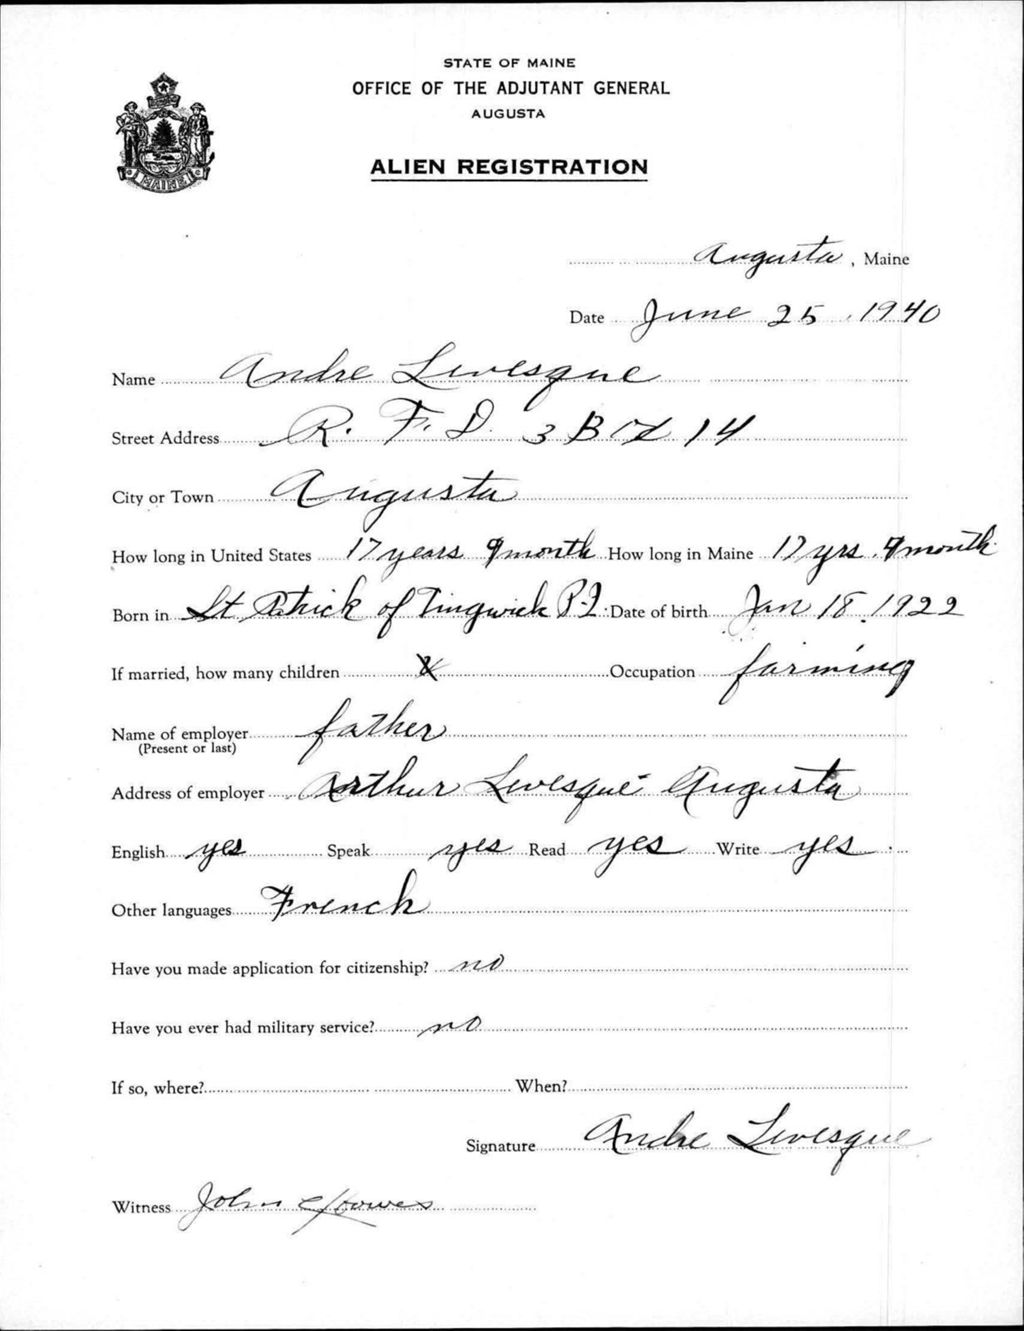 STATE OF MAINE
OFFICE OF THE ADJUTANT GENERAL
AUGUSTA
ALIEN REGISTRATION
MAINE
Augusta, Maine
Date June 25, 1940
Name Andre Levesque
Street Address R. F. D. 3 Box 14
City or Town Augusta
How long in United States 17 years 9 month How long in Maine 17 yrs. 9 month
Born in St Patrick of Tingwick P.Q. Date of birth Jan 18, 1922
If married, how many children X Occupation farming
Name of employer father
(Present or last)
Address of employer Arthur Levesque Augusta
English yes Speak yes Read yes Write yes
Other languages French
Have you made application for citizenship? no
Have you ever had military service? no
If so, where? When?
Signature Andre Levesque
Witness John